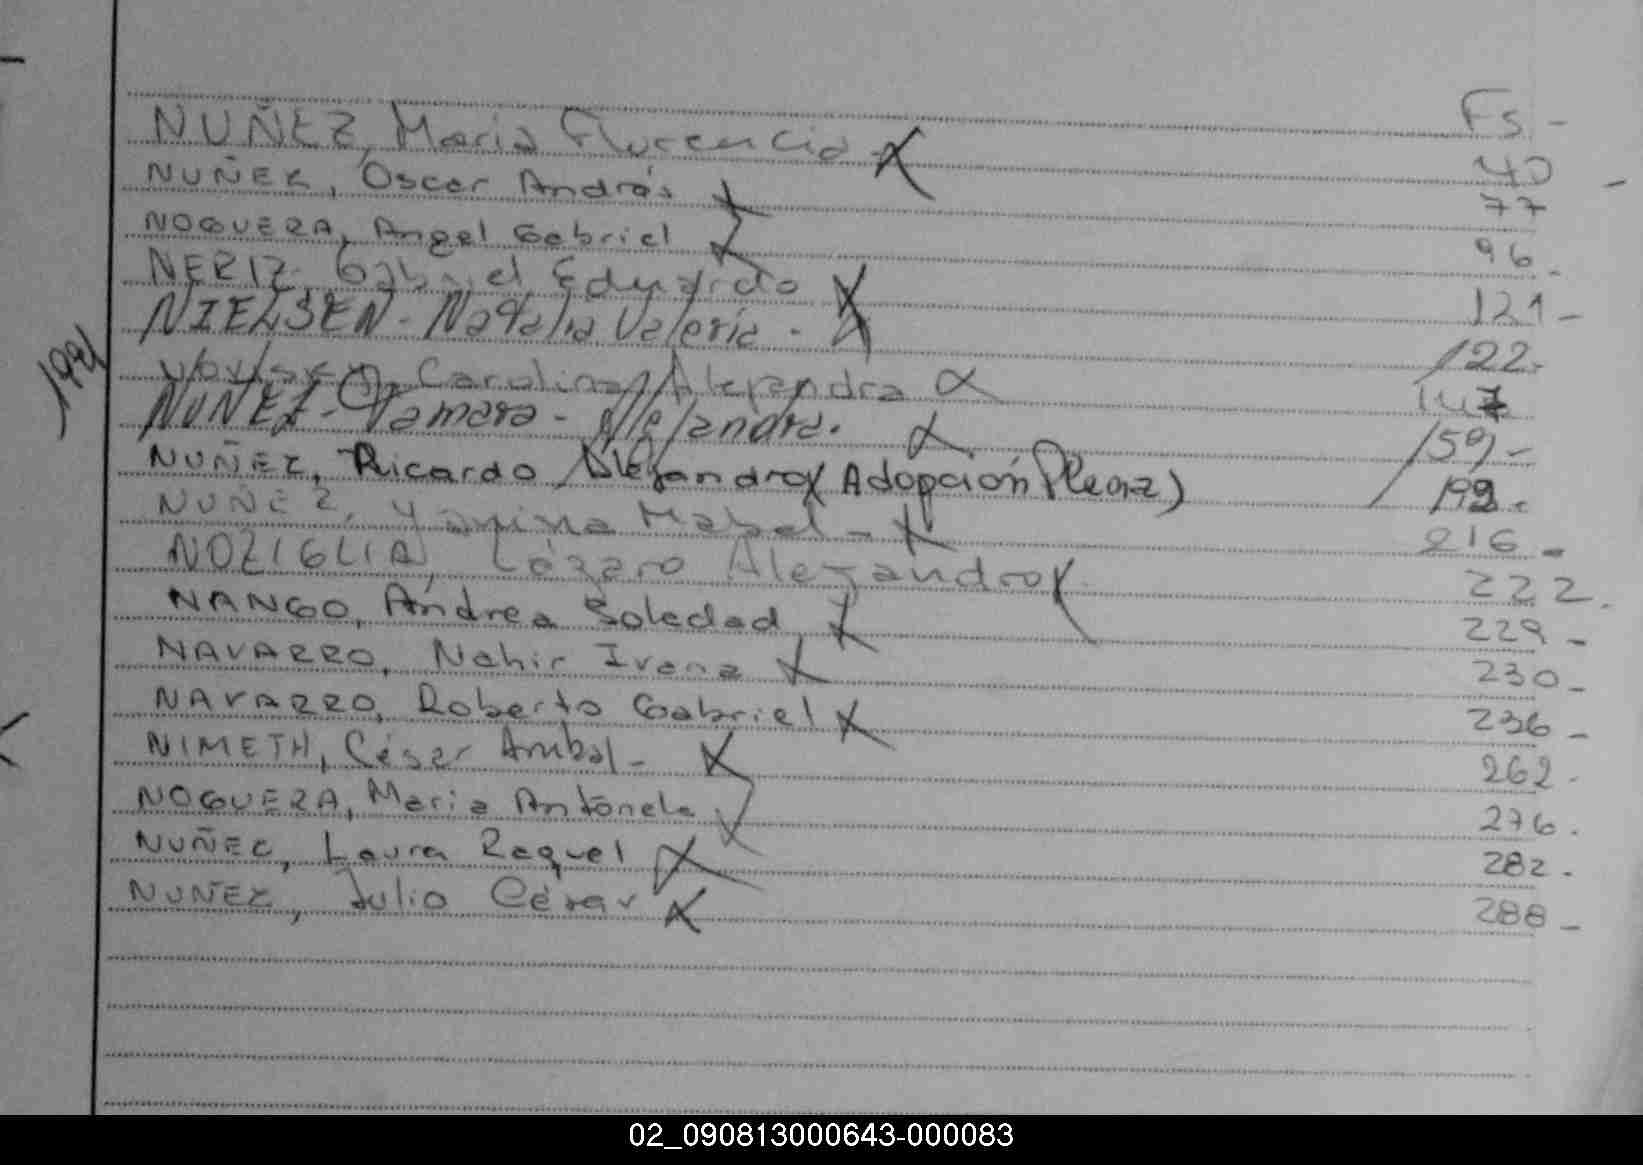 Fs -
NUÑEZ, Maria Florencia X 40
NUÑEZ, Oscar Andrés X 77
NOGUERA, Angel Gabriel X 96 -
NERIZ, Gabriel Eduardo X 121 -
NIELSEN - Natalia Valeria - X 122 -
1991
Carolina Alejandra X 147
NUÑEZ - Tamara - Alejandra. X 159 -
NUÑEZ, Ricardo Alejandro (Adopción Plena) 192 -
NUÑEZ, Yanina Mabel - X 216 -
NOZIGLIA, Lázaro Alejandro X 222.
NANGO, Andrea Soledad X 229 -
NAVARRO, Nahir Ivana X 230 -
NAVARRO, Roberto Gabriel X 236 -
NIMETH, César Anibal - X 262 -
NOGUERA, Maria Antonela X 276.
NUÑEZ, Laura Raquel X 282 -
NUÑEZ, Julio César X 288 -
02_090813000643-000083